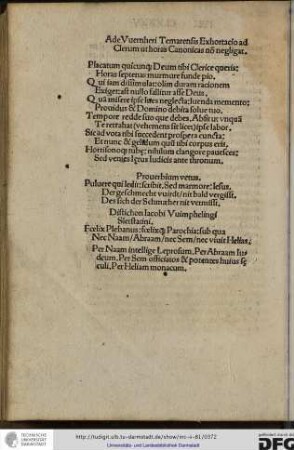 Ade Vuernheri Temarensis Exhortacio ad
Clerum ut horas Canonicas nõ negligat.
Placatum quicunq; Deum tibi Clerice queris;
Horas septenas murmure funde pio.
Qui siam dissimulat: olim duram racionem
Exiget: est nullo fallitur asse Deus.
Quã misere ipse lues neglecta: lornda memento;
Prouidus & Domino debita solue tuo.
Tempore redde suo que debes, Absit ut vnquã
Te retrahat (vehemens sit licet) ipse labor,
Sic ad vota tibi succedent prospera cuncta;
Et nunc & quid tibi corpus erit,
Horrisonoq; tube; nihilum clangore pauesces;
Sed venies Ignis Iudicis ante thronum.
Prouerbium vetus.
Puluere qui ledit: scribit, Sed marmore: lesus.
Der geschmecht vuirdt/nit bald vergißt.
Des sich der Schmaher nit vermißt.
Distichon Iacobi Vuimphelingi
Sletstatini.
Fœlix Plebanus: fœlixq; Parochia: sub qua
Nec Naam/Abraam/nec Sem/nec viuit Helias.
Per Naam intellige Leprosum. Per Abraam Iu-
deum. Per Sem officiatos & potentes huius se-
culi. Per Heliam monacum.
TECHNISCHE
UNIVERSITÄT
DARMSTADT
http://tudigit.ulb.tu-darmstadt.de/show/inc-ii-81/0372
Universitäts- und Landesbibliothek Darmstadt
gefördert durch die
DFG